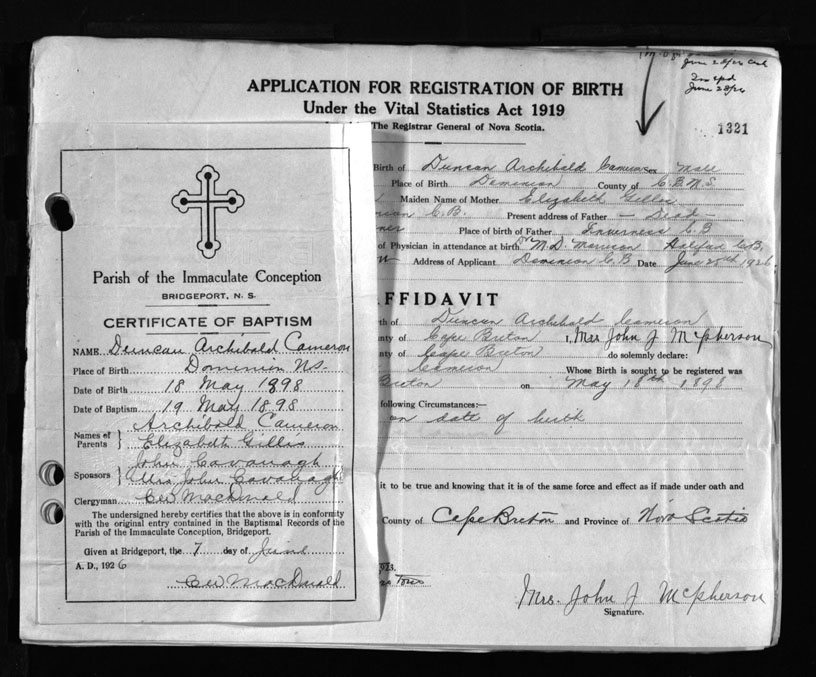 June 28/26
June 28/26
APPLICATION FOR REGISTRATION OF BIRTH
Under the Vital Statistics Act 1919
The Registrar General of Nova Scotia.
1321
Birth of Duncan Archibald Cameron Sex Male
Place of Birth Dominion County of C.B. N.S.
Maiden Name of Mother Elizabeth Gillis
C.B. Present address of Father — Dead —
Place of birth of Father Inverness C.B
of Physician in attendance at birth Dr M.D. Morrison Halifax
Address of Applicant Dominion C.B Date June 25th 1926
FFIDAVIT
th of Duncan Archibald Cameron
nty of Cape Breton I, Mrs John J McPherson
nty of Cape Breton do solemnly declare:
Cameron Whose Birth is sought to be registered was
Breton on May 18th 1898
following Circumstances:—
on date of birth
it to be true and knowing that it is of the same force and effect as if made under oath and
County of Cape Breton and Province of Nova Scotia
Mrs. John J McPherson
Signature.
Parish of the Immaculate Conception
BRIDGEPORT, N. S.
CERTIFICATE OF BAPTISM
NAME Duncan Archibald Cameron
Place of Birth Dominion NS.
Date of Birth 18 May 1898
Date of Baptism 19 May 1898
Names of Parents } Archibald Cameron
Elizabeth Gillis
Sponsors } John Cavanagh
Mrs John Cavanagh
Clergyman MacDonald
The undersigned hereby certifies that the above is in conformity
with the original entry contained in the Baptismal Records of the
Parish of the Immaculate Conception, Bridgeport.
Given at Bridgeport, the 7 day of June
A. D., 1926
MacDonald